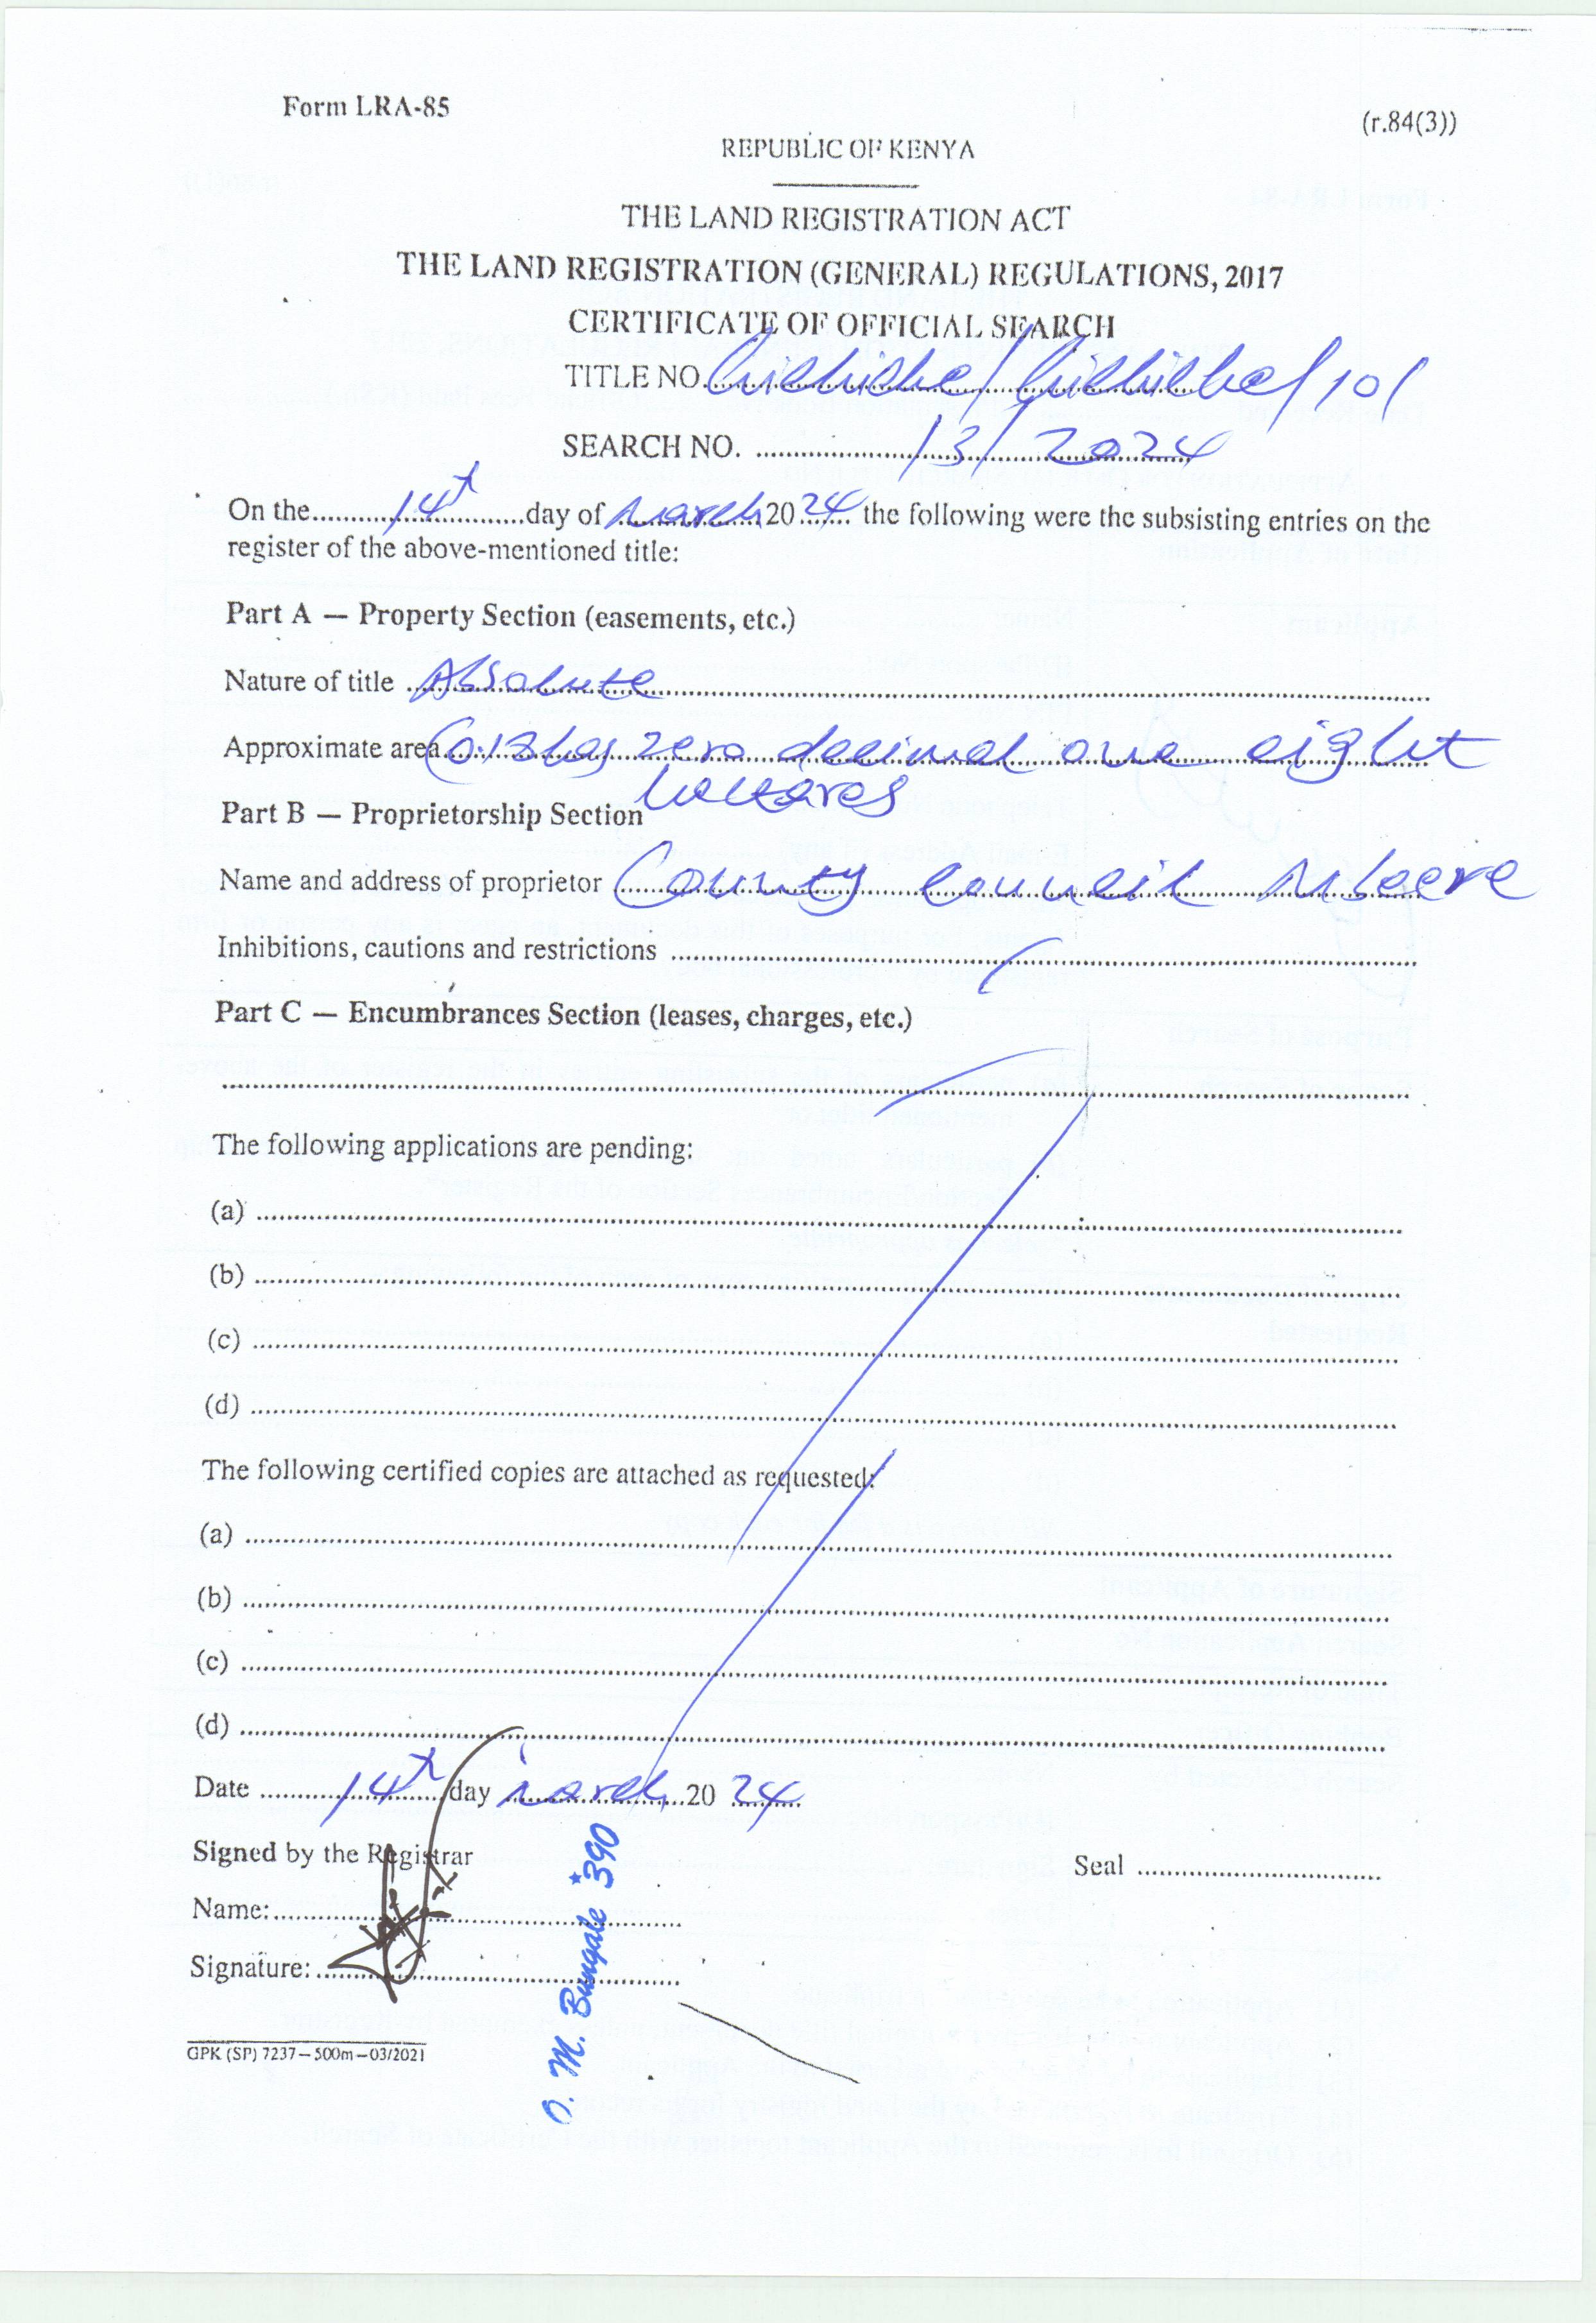 Form LRA-85
(r.84(3))
REPUBLIC OF KENYA
THE LAND REGISTRATION ACT
THE LAND REGISTRATION (GENERAL) REGULATIONS, 2017
CERTIFICATE OF OFFICIAL SEARCH
TITLE NO. / /101
SEARCH NO. 13/2024
On the 14th day of March 2024 the following were the subsisting entries on the
register of the above-mentioned title:
Part A — Property Section (easements, etc.)
Nature of title Absolute
Approximate area zero decimal one eight
hectares
Part B — Proprietorship Section
Name and address of proprietor County Council Mbeere
Inhibitions, cautions and restrictions
Part C — Encumbrances Section (leases, charges, etc.)
The following applications are pending:
(a)
(b)
(c)
(d)
The following certified copies are attached as requested:
(a)
(b)
(c)
(d)
Date 14th day March 20 24
Signed by the Registrar
Seal
Name:
Signature:
O. M. Bungale *390
GPK (SP) 7237—500m—03/2021